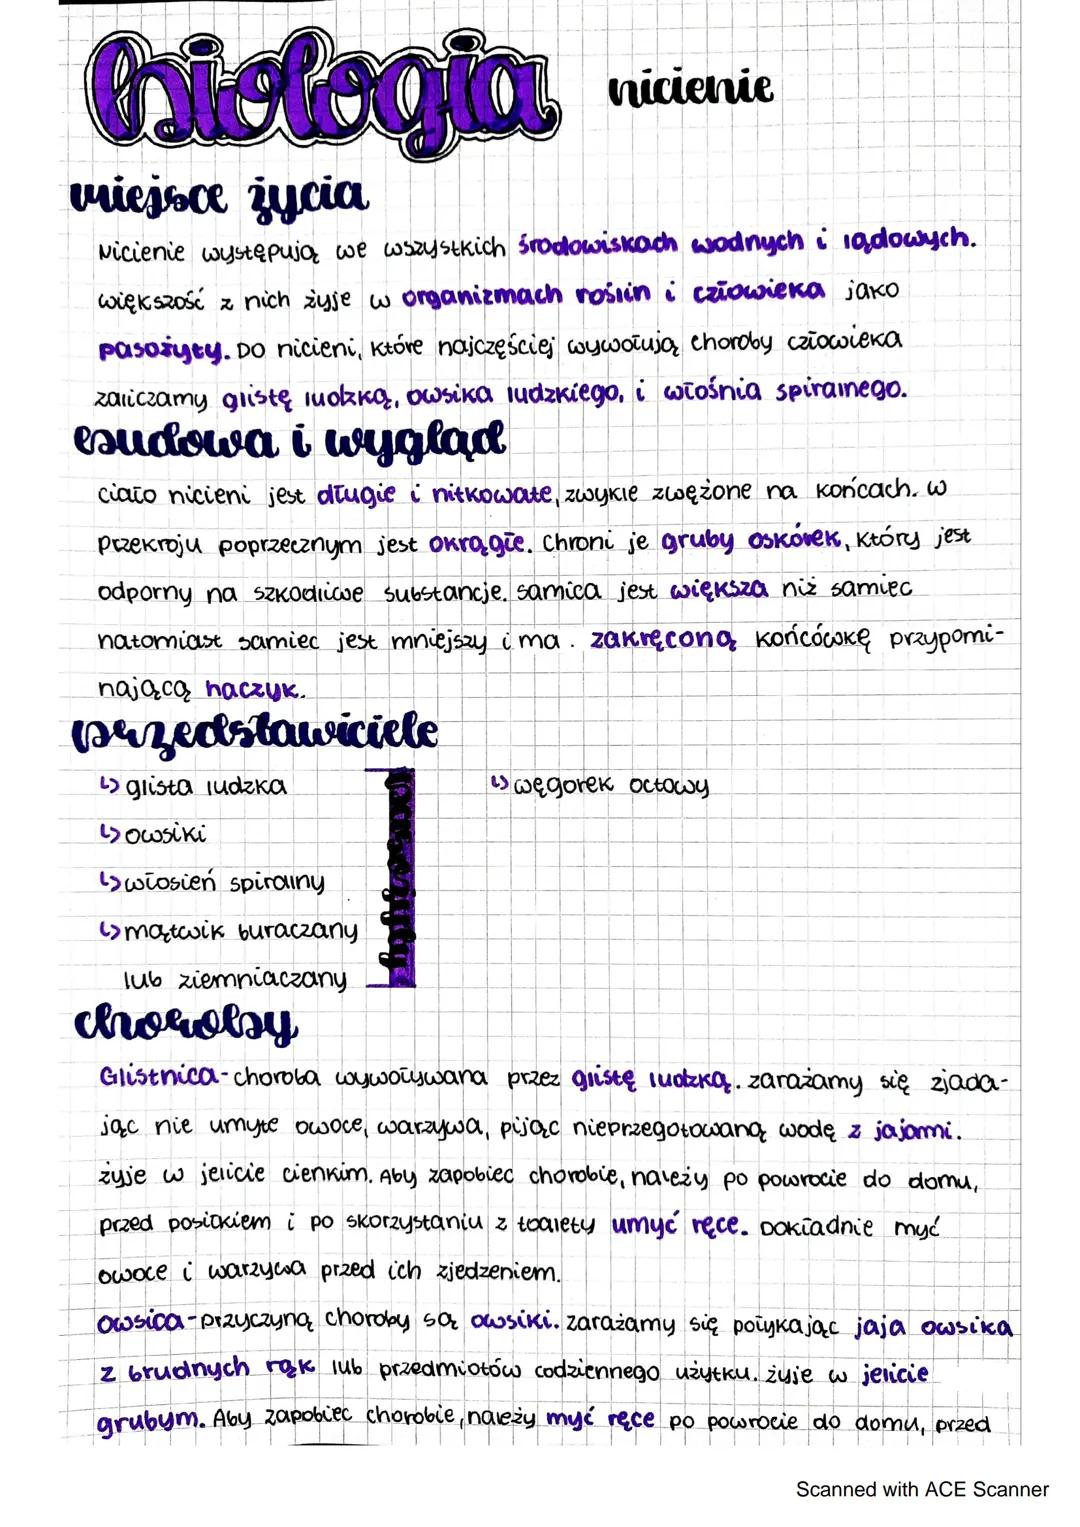 biologia nicienie
miejsce życia
Nicienie występują we wszystkich środowiskach wodnych i lądowych.
większość z nich żyje w organizmach roślin i człowieka jako
pasożyty. Do nicieni, które najczęściej wywołują choroby człowieka
zaliczamy glistę ludzką, owsika ludzkiego, i włośnia spiralnego.
budowa i wygląd
ciało nicieni jest długie i nitkowate, zwykle zwężone na końcach. w
przekroju poprzecznym jest okrągłe. Chroni je gruby oskórek, który jest
odporny na szkodliwe substancje. samica jest większa niż samiec
natomiast samiec jest mniejszy i ma . zakręconą końcówkę przypomi-
nającą haczyk.
przedstawiciele
↳ glista ludzka
↳ owsiki
↳ włosień spiralny
↳ mątwik buraczany
lub ziemniaczany
↳ węgorek octowy
choroby
Glistnica - choroba wywoływana przez glistę ludzką. zarażamy się zjada-
jąc nie umyte owoce, warzywa, pijąc nieprzegotowaną wodę z jajami.
żyje w jelicie cienkim. Aby zapobiec chorobie, należy po powrocie do domu,
przed posiłkiem i po skorzystaniu z toalety umyć ręce. Dokładnie myć
owoce i warzywa przed ich zjedzeniem.
Owsica - przyczyną choroby są owsiki. zarażamy się połykając jaja owsika
z brudnych rąk lub przedmiotów codziennego użytku. żyje w jelicie
grubym. Aby zapobiec chorobie, należy myć ręce po powrocie do domu, przed
Scanned with ACE Scanner